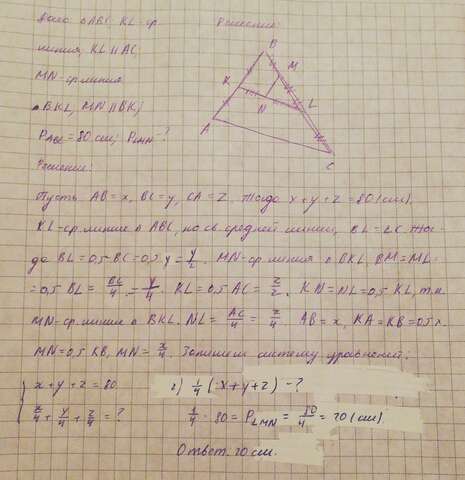 Дано: △ABC KL-ср. Решение:
линия, KL || AC
MN-ср.линия
△BKL, MN || BK;
P ABC = 80 см; P LMN - ?
B
M
K
N
L
A
C
Решение:
Пусть AB = x, BC = y, CA = z. Тогда x + y + z = 80 (см).
KL-ср.линия △ ABC, по св. средней линии, BL = LC. Тог-
да BL = 0,5 BC = 0,5 y = y/2. MN-ср.линия △ BKL, BM = ML =
= 0,5 BL = BC/4 = y/4. KL = 0,5 AC = z/2. KN = NL = 0,5 KL, т.к.
MN-ср.линия △ BKL. NL = AC/4 = z/4. AB = x, KA = KB = 0,5 x.
MN = 0,5 KB, MN = x/4. Запишем систему уравнений:
x + y + z = 80 2) 1/4 (x + y + z) - ?
x/4 + y/4 + z/4 = ? 1/4 · 80 = P LMN = 80/4 = 20 (см).
Ответ. 20 см.